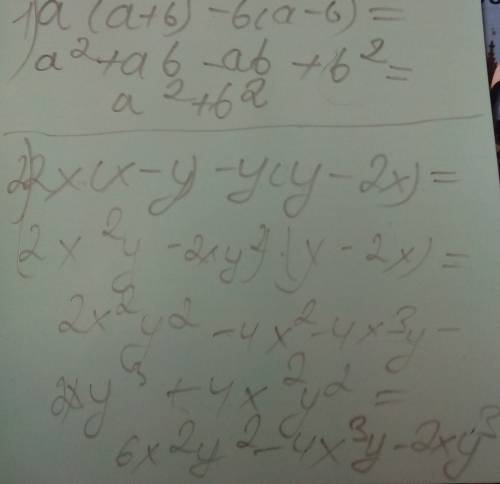 1) a (a+b) - b(a-b) =
a² + ab - ab + b² =
a² + b²
2) 2x(x-y) - y(y-2x) =
(2x²y - 2xy²)·(y - 2x) =
2x²y² - 4x² - 4x³y -
2xy³ + 4x²y² =
6x²y² - 4x³y - 2xy³